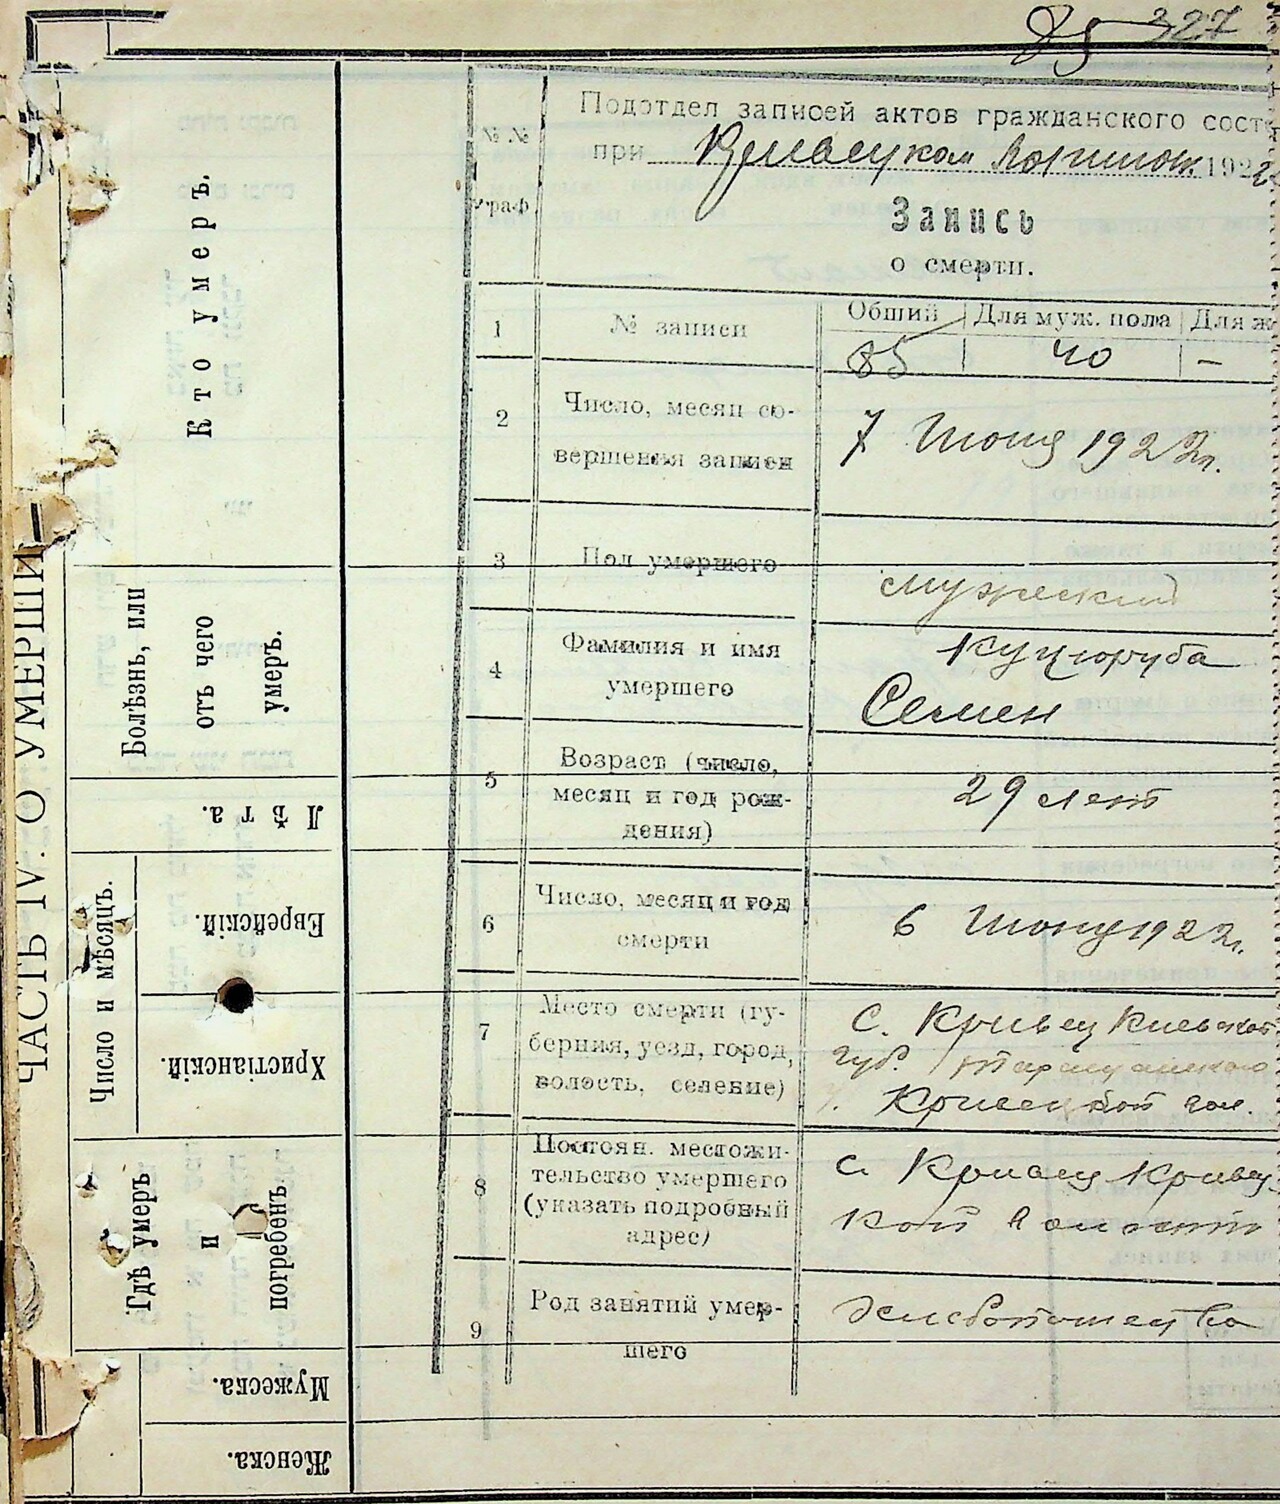 85 327
Подотдел записей актов гражданского сост
при Кривецком Волисполк. 1922
Запись
о смерти.
№№
граф
1
№ записи
Общий Для муж. пола Для ж
85 40 –
2
Число, месяц со-
вершения записи
7 Июня 1922г.
3
Пол умершего
мужеский
4
Фамилия и имя
умершего
Куцоруба
Семен
5
Возраст (число,
месяц и год рож-
дения)
29 лет
6
Число, месяц и год
смерти
6 Июня 1922г.
7
Место смерти (гу-
берния, уезд, город,
волость, селение)
С. Кривец Киевской
губ. Таращанского
у. Кривецкой вол.
8
Постоян. местожи-
тельство умершего
(указать подробный
адрес)
с. Кривец Кривец-
кой волости
9
Род занятий умер-
шего
хлебопашество
ЧАСТЬ IV. О УМЕРШИ
Кто умеръ.
Болѣзнь, или
отъ чего
умеръ.
Лѣта.
Число и мѣсяцъ.
Еврейскій.
Христіанскій.
Гдѣ умеръ
и
погребенъ
Мужеска.
Женска.